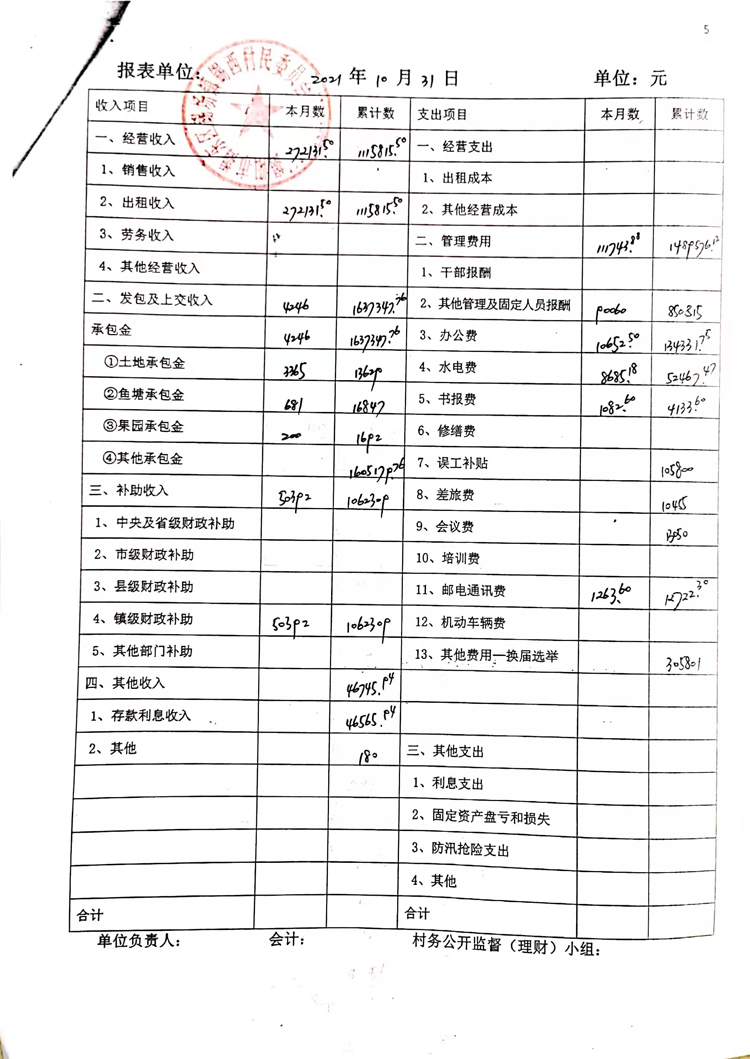 5
报表单位: 2021 年 10 月 31 日 单位:元
收入项目 本月数 累计数 支出项目 本月数 累计数
一、经营收入 272131.50 1115815.50 一、经营支出
1、销售收入 1、出租成本
2、出租收入 272131.50 1115815.50 2、其他经营成本
3、劳务收入 二、管理费用 111743.88 1489576.12
4、其他经营收入 1、干部报酬
二、发包及上交收入 4246 1637347.76 2、其他管理及固定人员报酬 90060 850315
承包金 4246 1637347.76 3、办公费 10652.50 134331.75
①土地承包金 3365 13629 4、水电费 8685.18 52467.47
②鱼塘承包金 681 16847 5、书报费 1082.60 4133.60
③果园承包金 200 1692 6、修缮费
④其他承包金 1605179.76 7、误工补贴 105800
三、补助收入 50392 1062309 8、差旅费 10455
1、中央及省级财政补助 9、会议费 13550
2、市级财政补助 10、培训费
3、县级财政补助 11、邮电通讯费 1263.60 12722.30
4、镇级财政补助 50392 1062309 12、机动车辆费
5、其他部门补助 13、其他费用—换届选举 305801
四、其他收入 46745.94
1、存款利息收入 46565.94
2、其他 180 三、其他支出
1、利息支出
2、固定资产盘亏和损失
3、防汛抢险支出
4、其他
合计 合计
单位负责人: 会计: 村务公开监督(理财)小组: